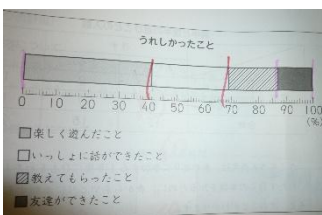 うれしかったこと
0 10 20 30 40 50 60 70 80 90 100
(%)
楽しく遊んだこと
いっしょに話ができたこと
教えてもらったこと
友達ができたこと